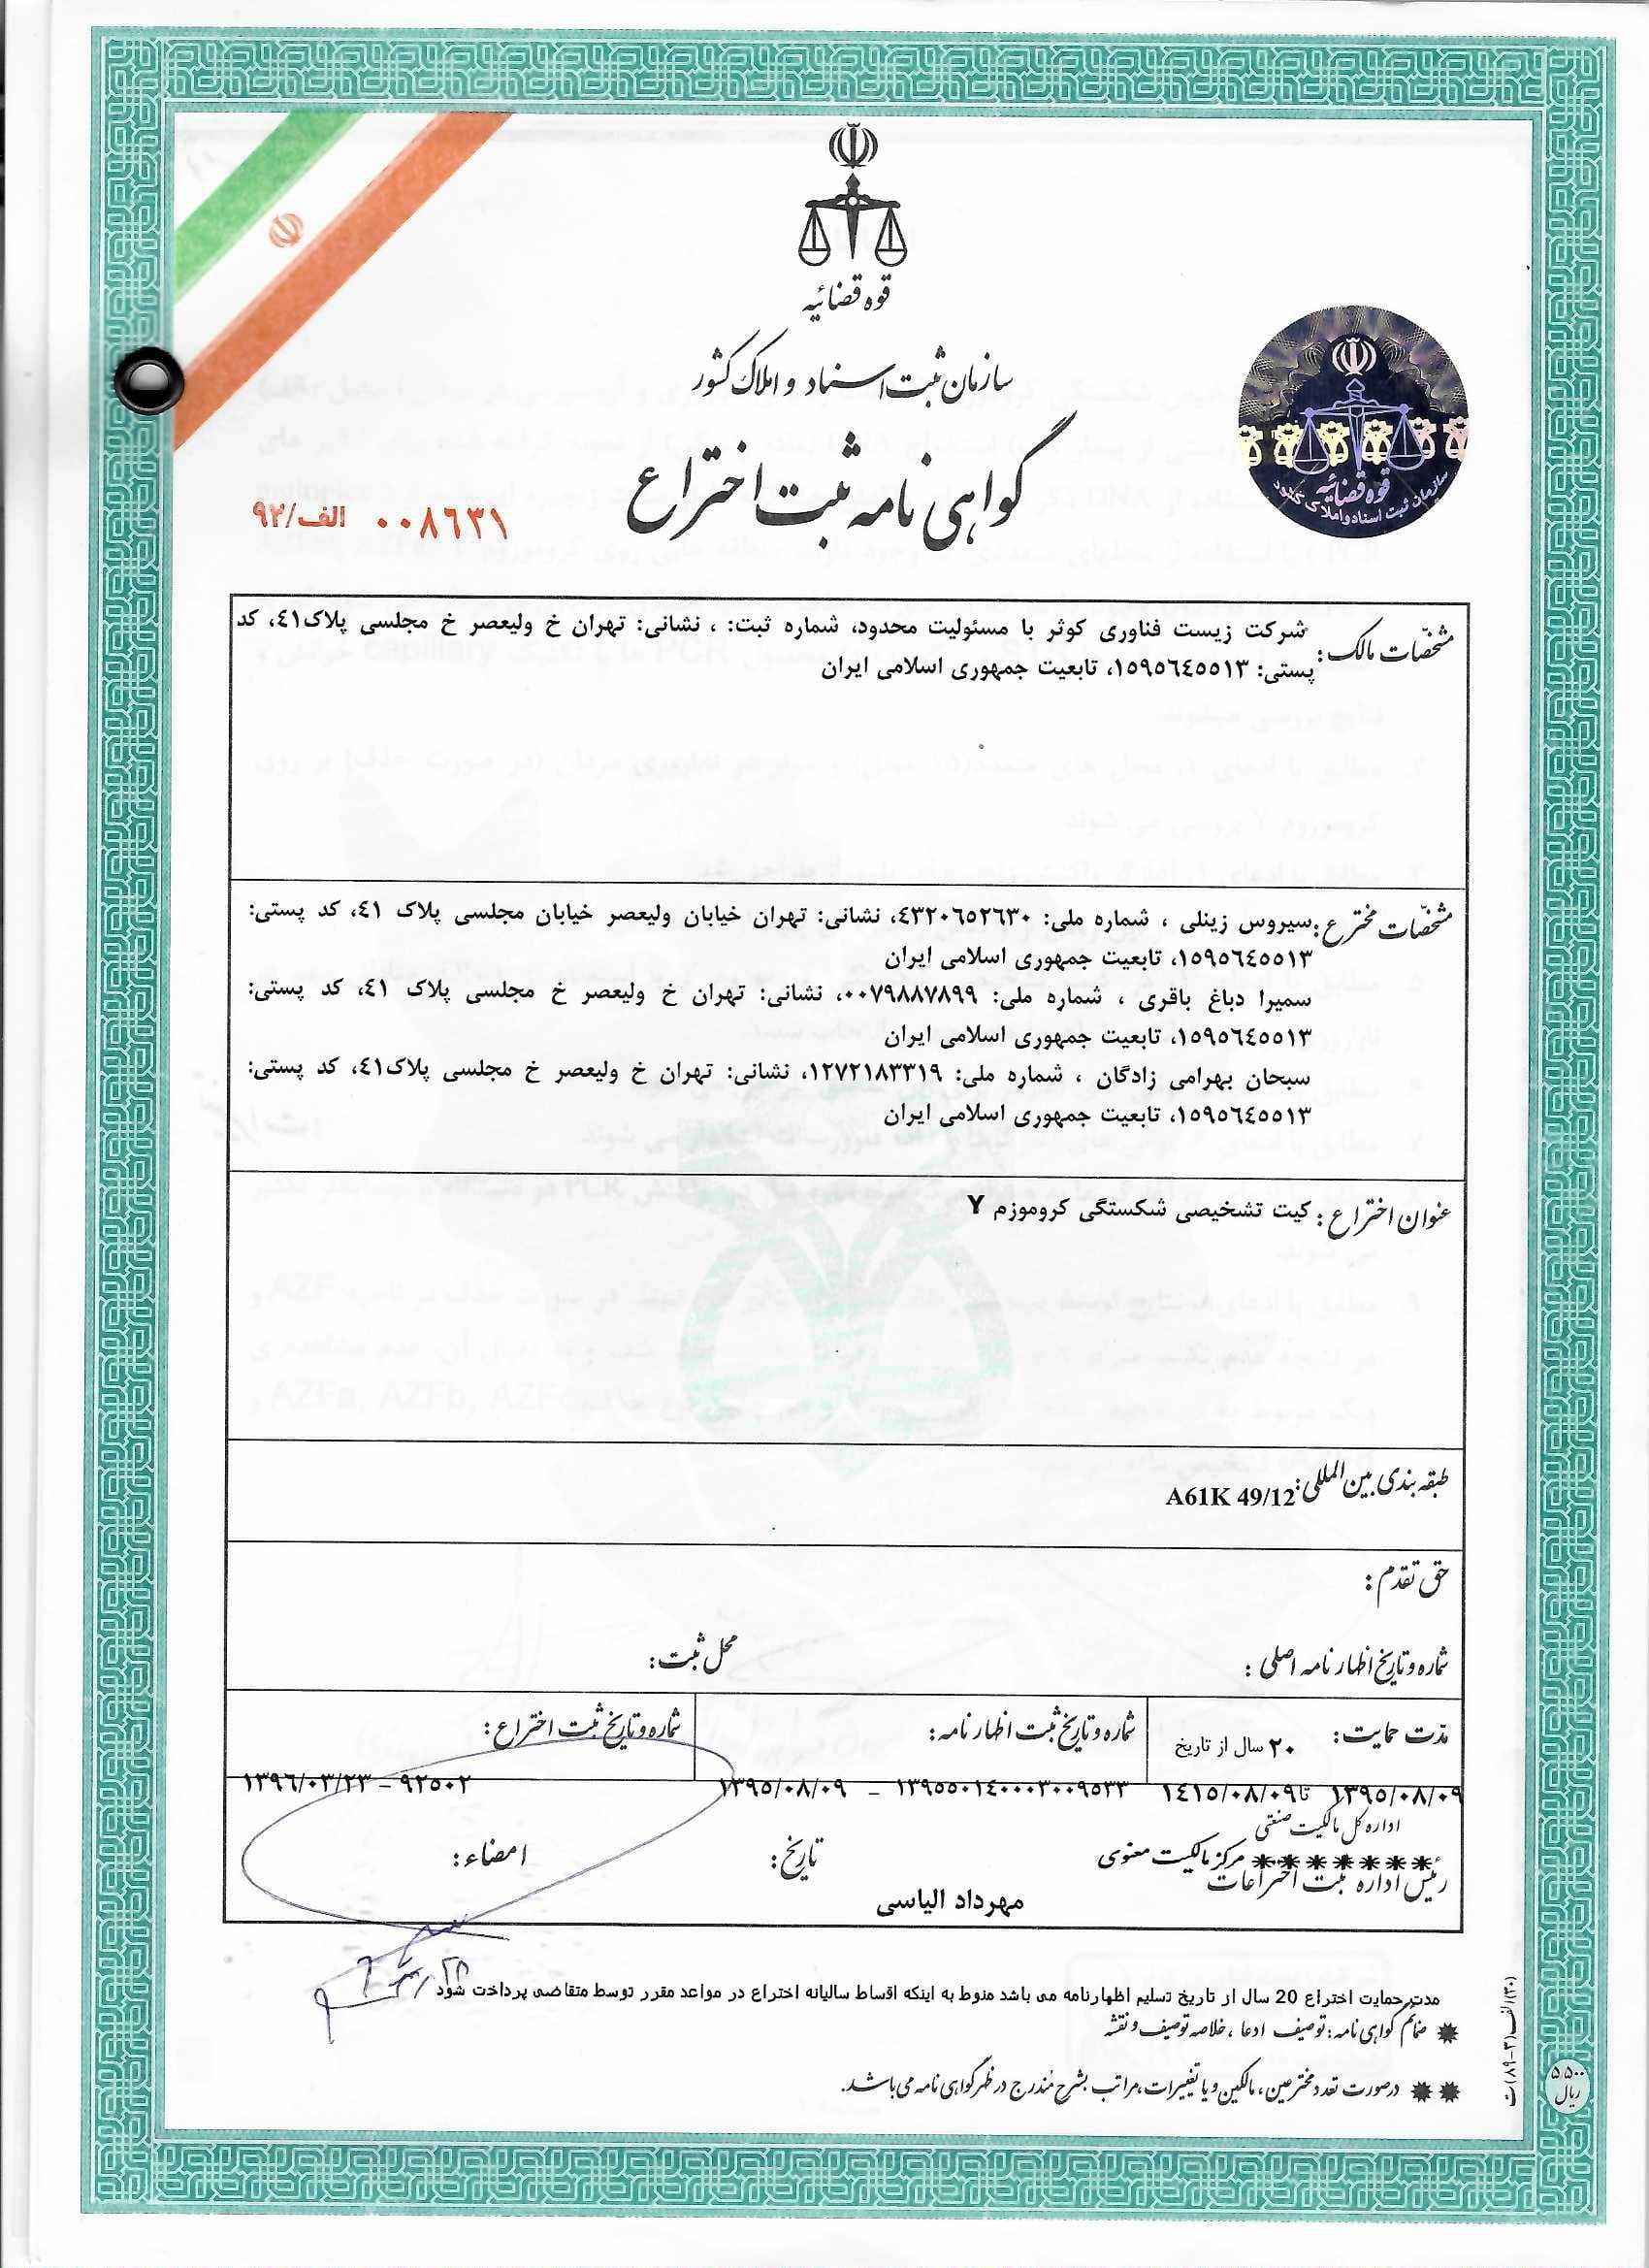 قوه قضائیه
سازمان ثبت اسناد و املاک کشور
گواهی نامه ثبت اختراع
۰۰۸٦۳۱ الف/۹۲
قوه قضائیه
سازمان ثبت اسناد و املاک کشور
مشخصّات مالک: شرکت زیست فناوری کوثر با مسئولیت محدود، شماره ثبت: ، نشانی: تهران خ ولیعصر خ مجلسی پلاک٤۱، کد
پستی: ۱٥۹٥٦٤٥٥۱۳، تابعیت جمهوری اسلامی ایران
مشخصّات مخترع: سیروس زینلی ، شماره ملی: ٤۳۲۰٦٥۲٦۳۰، نشانی: تهران خیابان ولیعصر خیابان مجلسی پلاک ٤۱، کد پستی:
۱٥۹٥٦٤٥٥۱۳، تابعیت جمهوری اسلامی ایران
سمیرا دباغ باقری ، شماره ملی: ۰۰۷۹۸۸۷۸۹۹، نشانی: تهران خ ولیعصر خ مجلسی پلاک ٤۱، کد پستی:
۱٥۹٥٦٤٥٥۱۳، تابعیت جمهوری اسلامی ایران
سبحان بهرامی زادگان ، شماره ملی: ۱۲۷۲۱۸۳۳۱۹، نشانی: تهران خ ولیعصر خ مجلسی پلاک٤۱، کد پستی:
۱٥۹٥٦٤٥٥۱۳، تابعیت جمهوری اسلامی ایران
عنوان اختراع: کیت تشخیصی شکستگی کروموزم Y
طبقه بندی بین المللی: A61K 49/12
حق تقدم:
شماره و تاریخ اظهارنامه اصلی: محل ثبت:
مدّت حمایت: ۲۰ سال از تاریخ شماره و تاریخ ثبت اظهارنامه: شماره و تاریخ ثبت اختراع:
۱۳۹٥/۰۸/۰۹ تا ۱٤۱٥/۰۸/۰۹ ۱۳۹٥٥۰۱٤۰۰۰۳۰۰۹٥۳۳ – ۱۳۹٥/۰۸/۰۹ ۹۲٥۰۲ – ۱۳۹٦/۰۳/۲۳
اداره کل مالکیت صنعتی
مرکز مالکیت معنوی تاریخ: امضاء:
رئیس اداره ثبت اختراعات
مهرداد الیاسی
مدت حمایت اختراع 20 سال از تاریخ تسلیم اظهارنامه می باشد منوط به اینکه اقساط سالیانه اختراع در مواعد مقرر توسط متقاضی پرداخت شود
ضمائم گواهی نامه: توصیف ادعا، خلاصه توصیف و نقشه
درصورت تعدد مخترعین، مالکین و یا تغییرات، مراتب بشرح مندرج در ظهر گواهی نامه می باشد.
(۳۰) الف (۳-۸۹) ث
۵۵۰۰
ریال